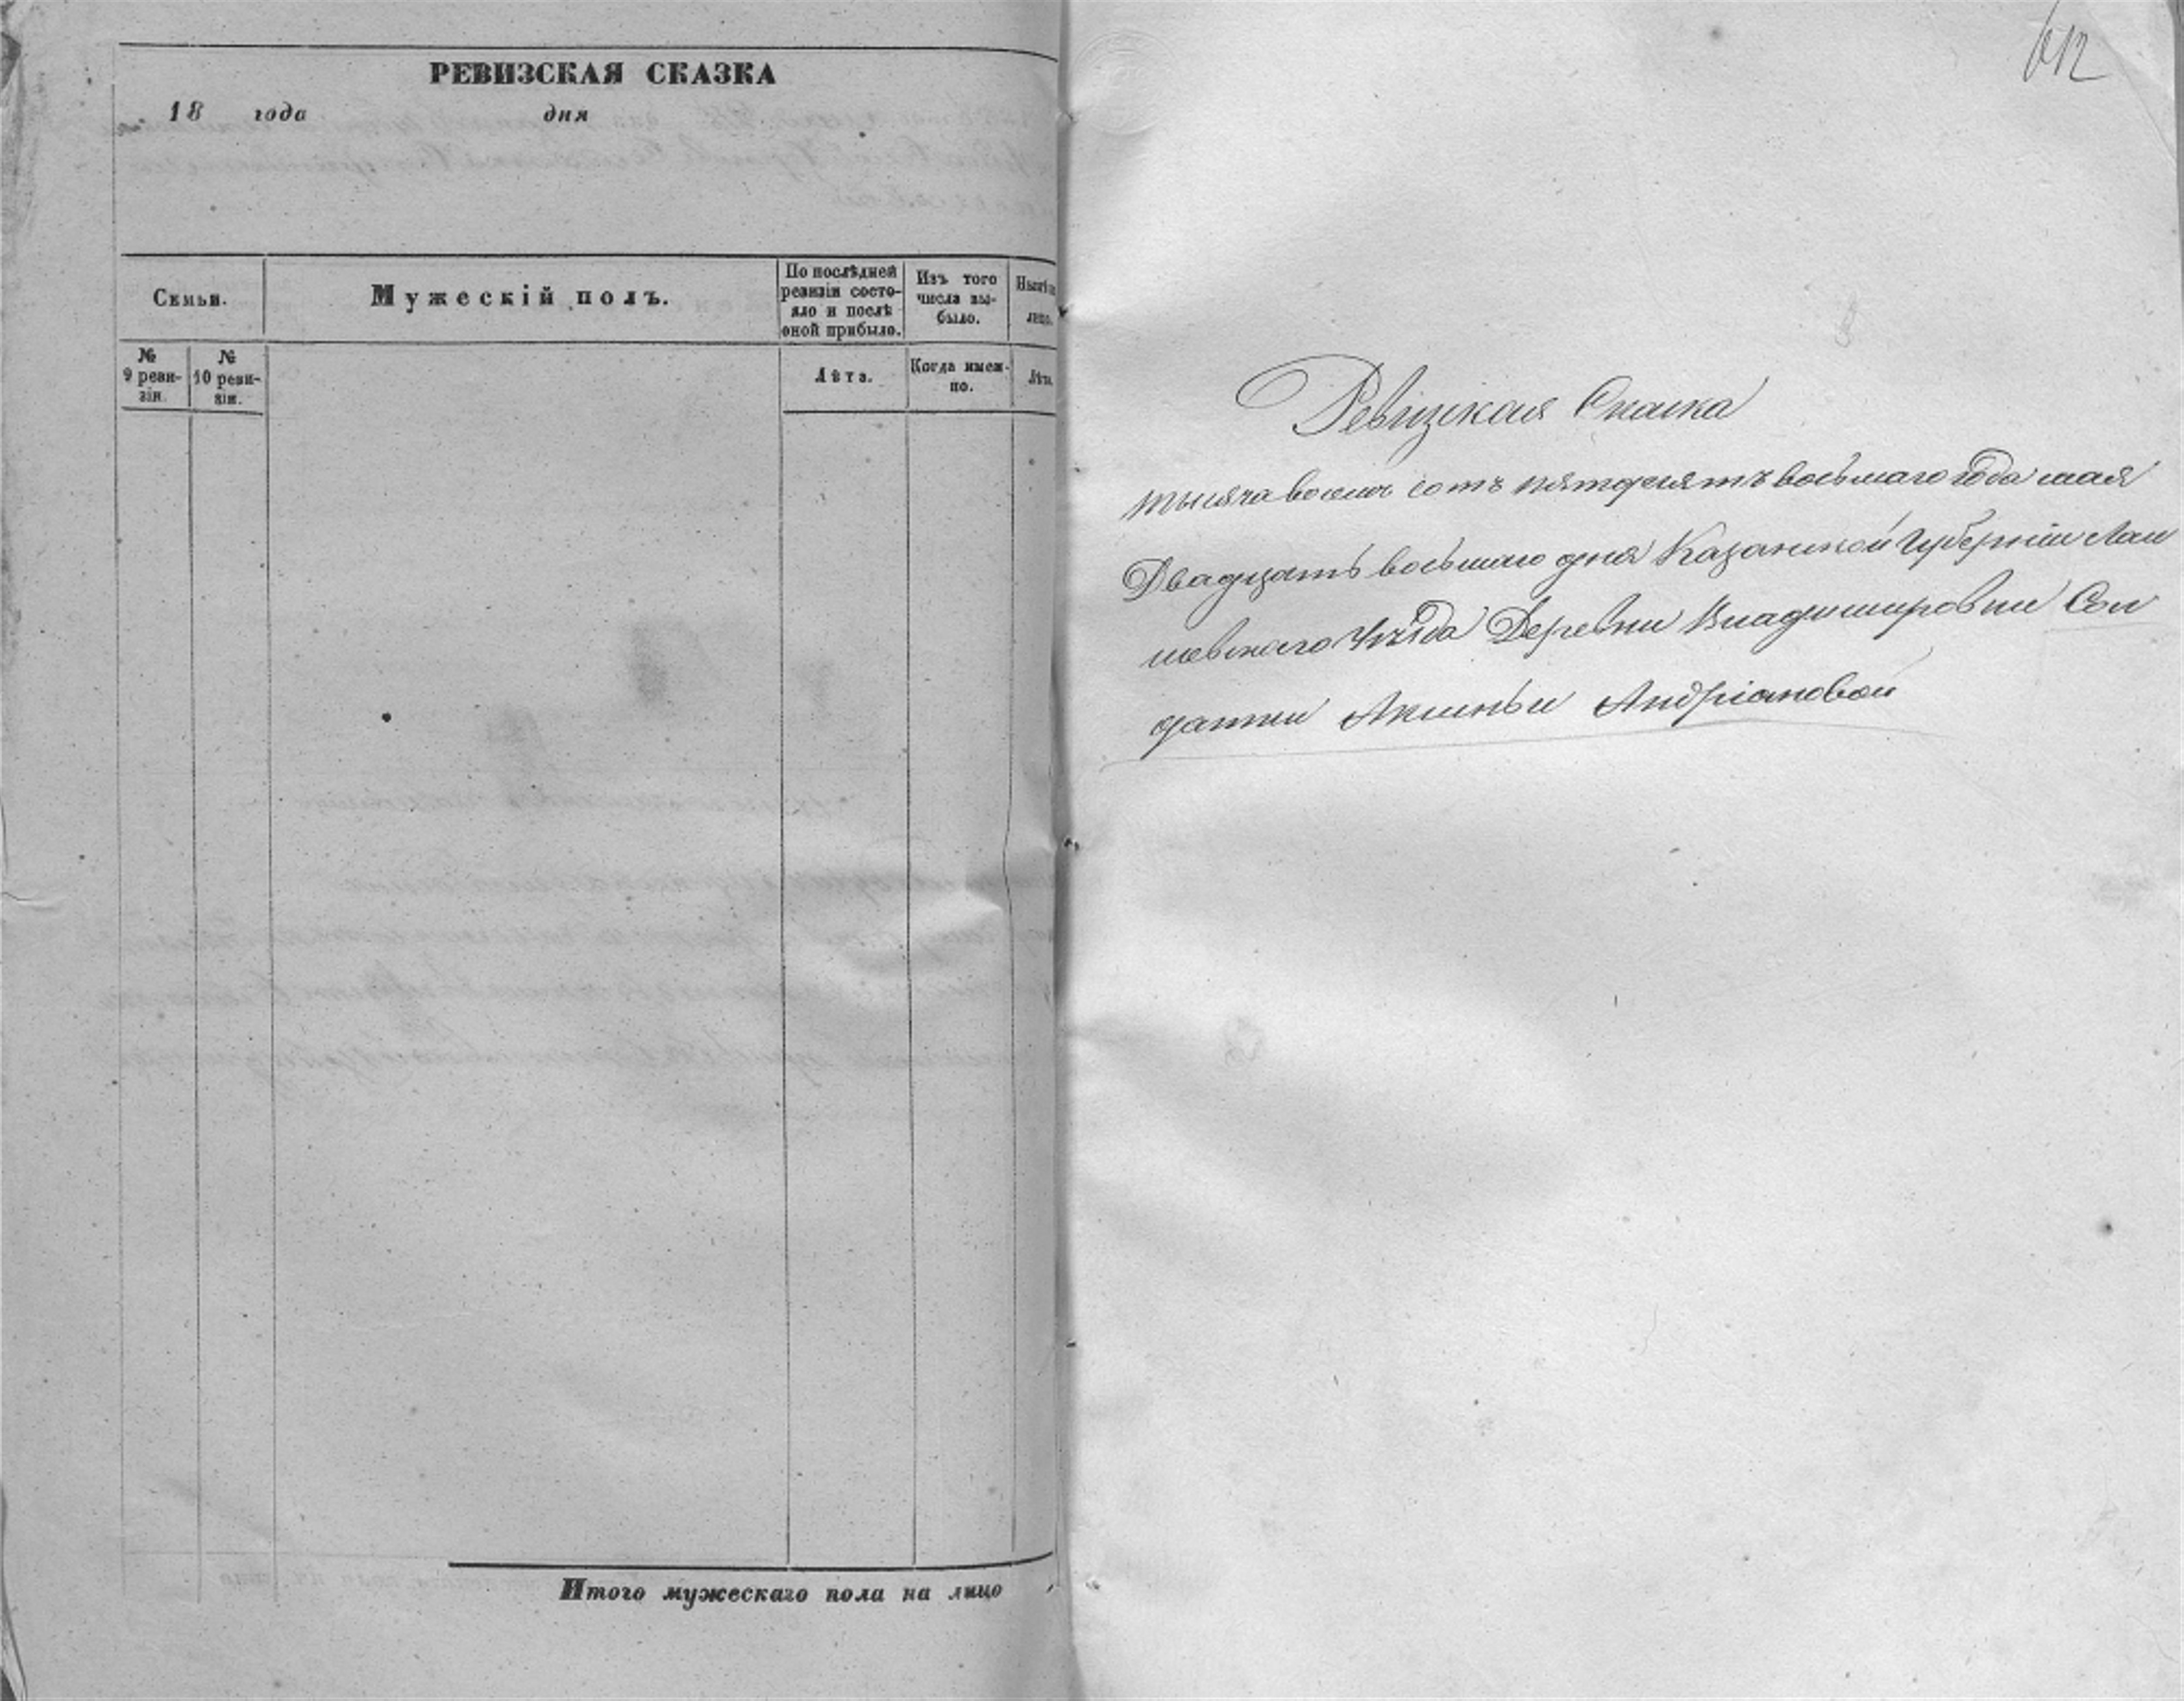 РЕВИЗСКАЯ СКАЗКА
18 года дня
Семьи.
Мужескій полъ.
По послѣдней
ревизіи состо-
яло и послѣ
оной прибыло.
Изъ того
числа вы-
было.
лицо.
№
9 реви-
зіи.
№
10 реви-
зіи.
Лѣта.
Когда имен-
но.
Лѣта.
Итого мужескаго пола на лицо
612
Ревизская Сказка
тысяча восемь сотъ пятдесятъ восьмаго года мая
Двадцать восьмаго дня Казанской Губерніи Лаи
шевскаго Уѣзда Деревни Владимировки Сол
датки Аксиньи Андріановой